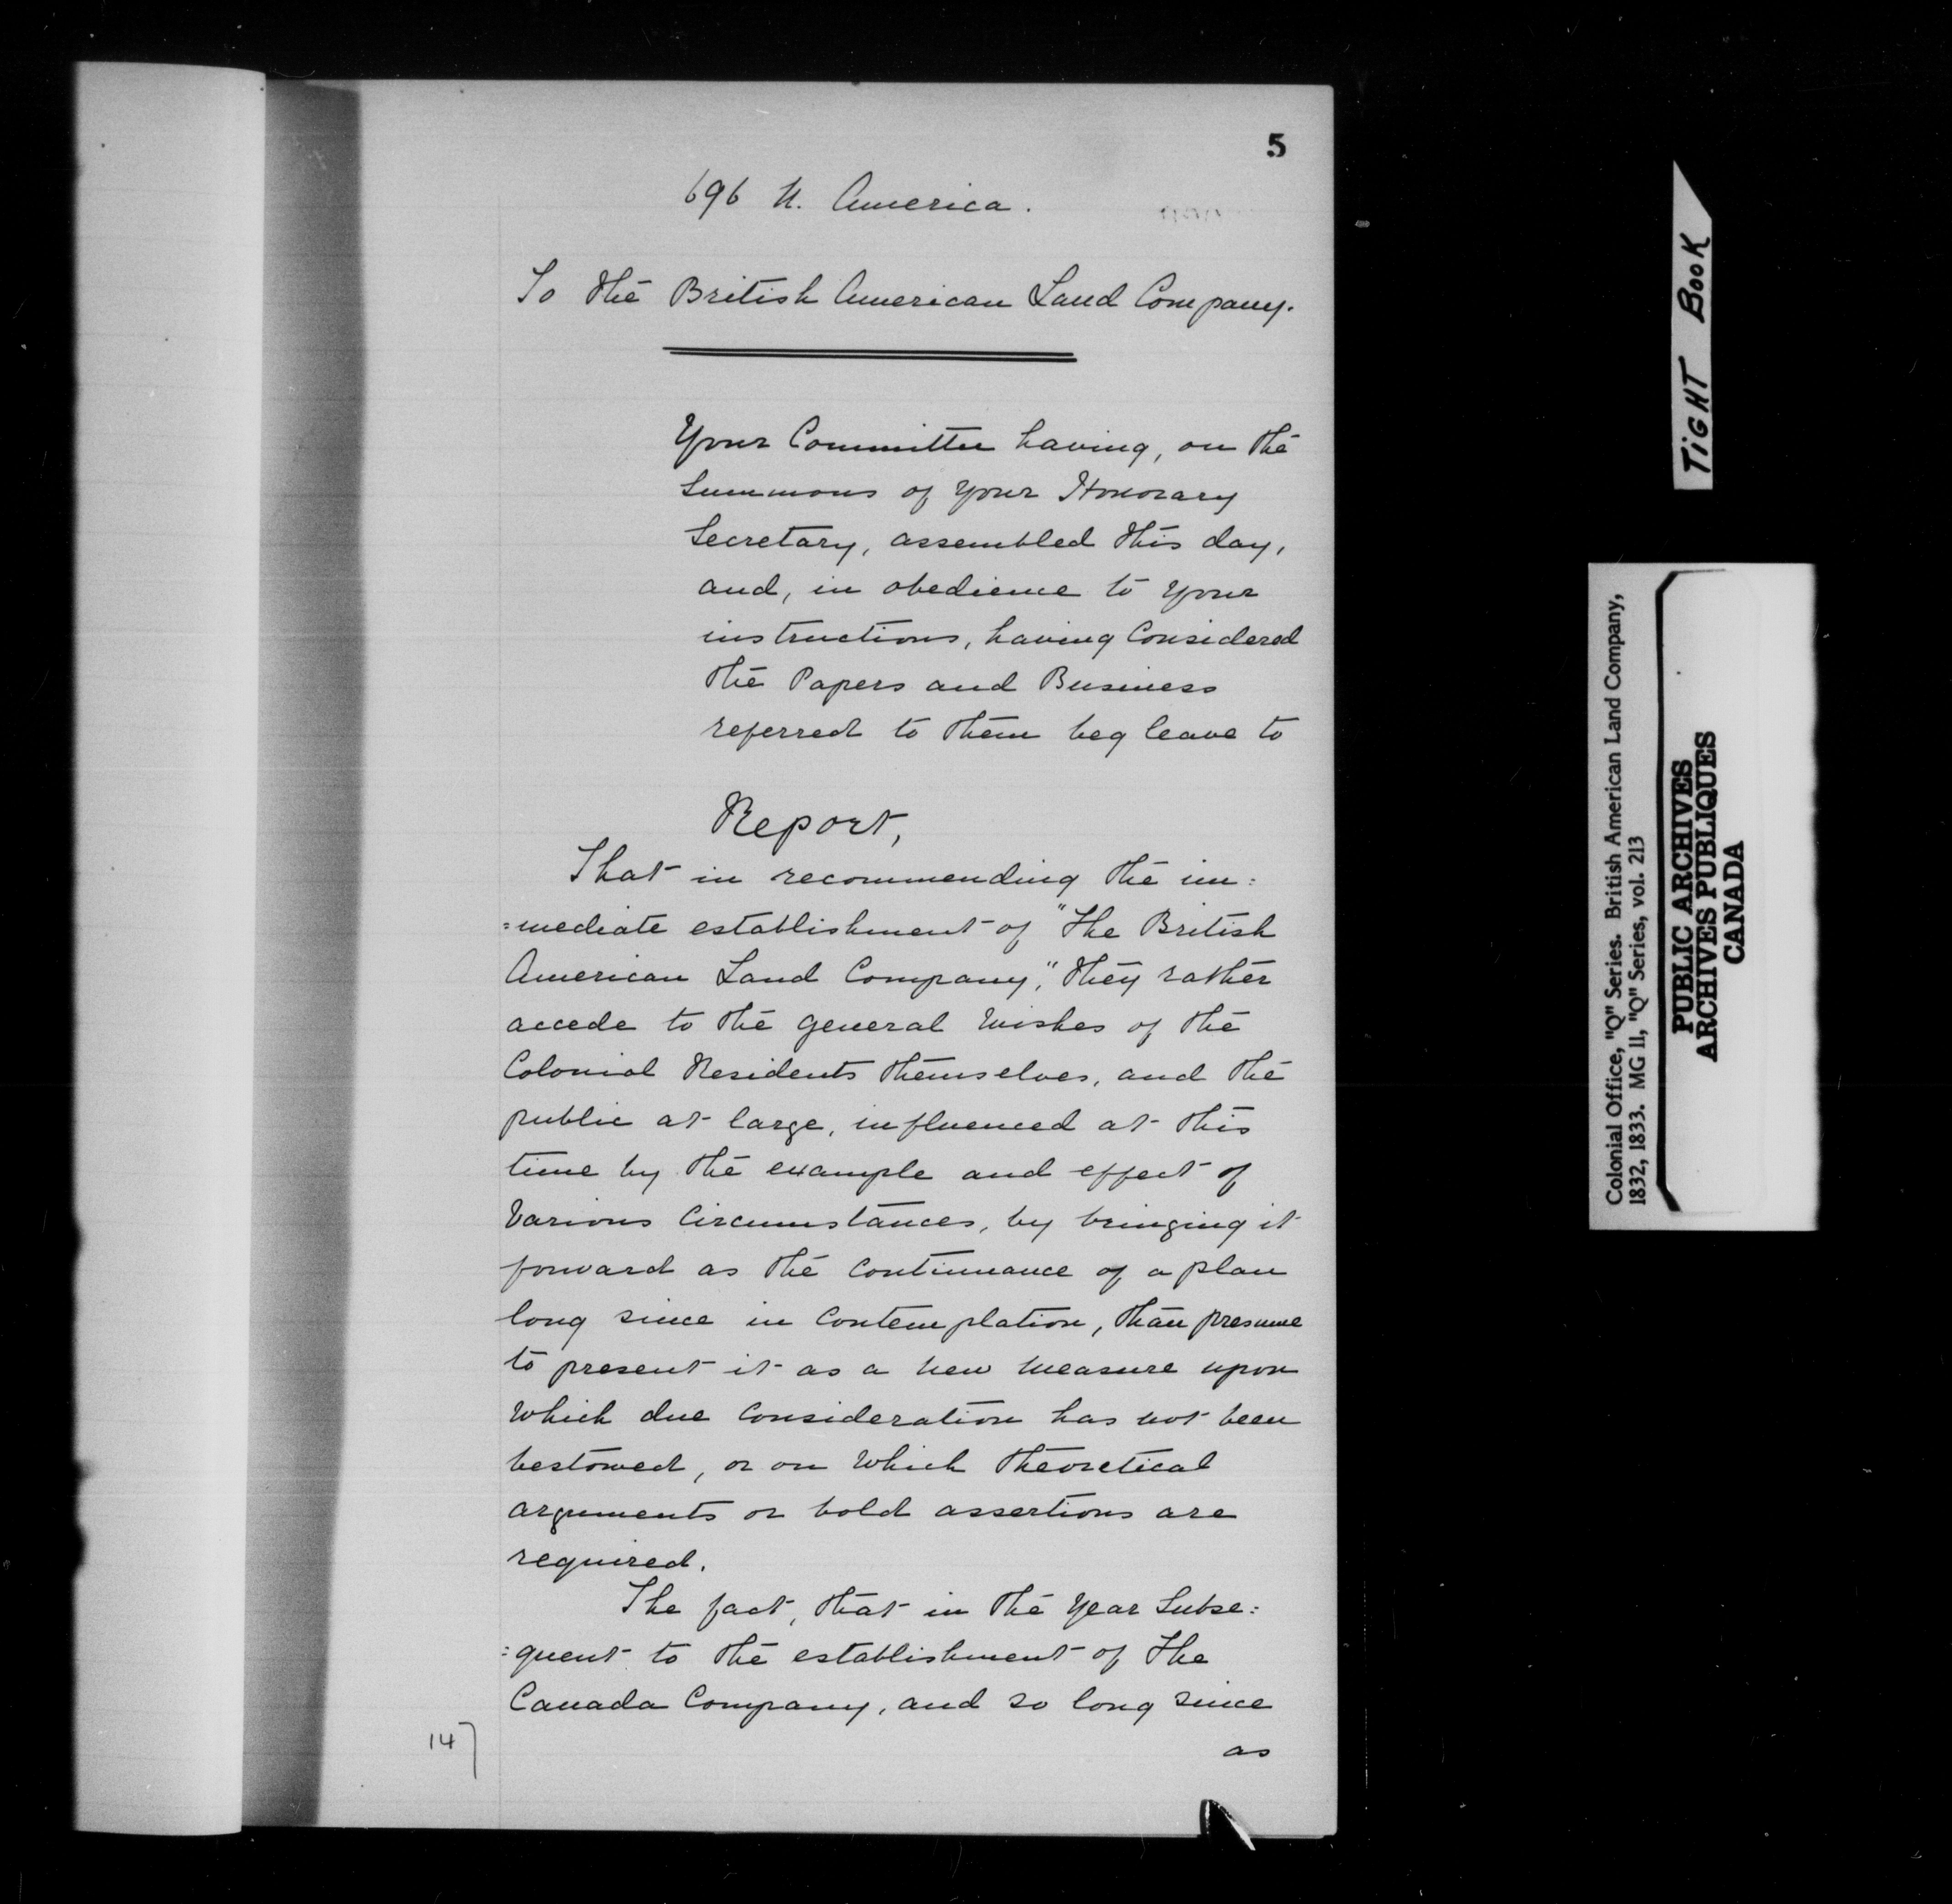 5
696 N. America.
To the British American Land Company.
Your Committee having, on the
Summons of your Honorary
Secretary, assembled this day,
and, in obedience to your
instructions, having Considered
the Papers and Business
referred to them beg leave to
Report,
That in recommending the im:
:mediate establishment of "The British
American Land Company", they rather
accede to the general wishes of the
Colonial Residents themselves, and the
public at large, influenced at this
time by the example and effect of
Various Circumstances, by bringing it
forward as the Continuance of a plan
long since in Contemplation, than presume
to present it as a new measure upon
Which due Consideration has not been
bestowed, or on Which theoretical
arguments or bold assertions are
required.
The fact, that in the Year Subse:
:quent to the establishment of The
Canada Company, and so long since
as
14
TIGHT BOOK
Colonial Office, "Q" Series. British American Land Company,
1832, 1833. MG 11, "Q" Series, vol. 213
PUBLIC ARCHIVES
ARCHIVES PUBLIQUES
CANADA